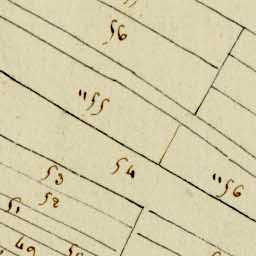 56
"55
54
"56
53
52
51
49